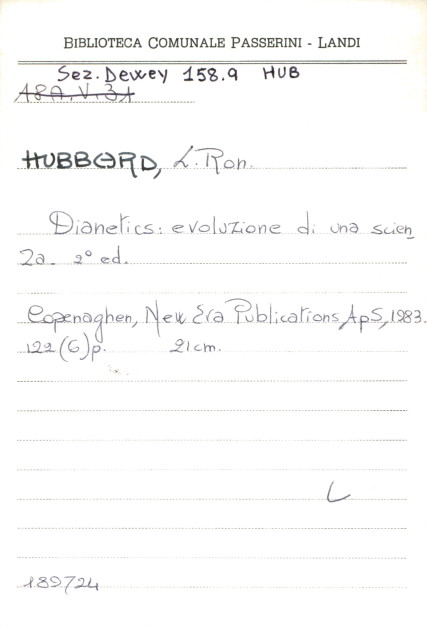 BIBLIOTECA COMUNALE PASSERINI - LANDI
Sez. Dewey 158.9 HUB
18A.V.31
HUBBARD, L. Ron.
Dianetics: evoluzione di una scien
za. 2° ed.
Copenaghen, New Era Publications ApS, 1983.
122 (6) p. 21 cm.
L
189724